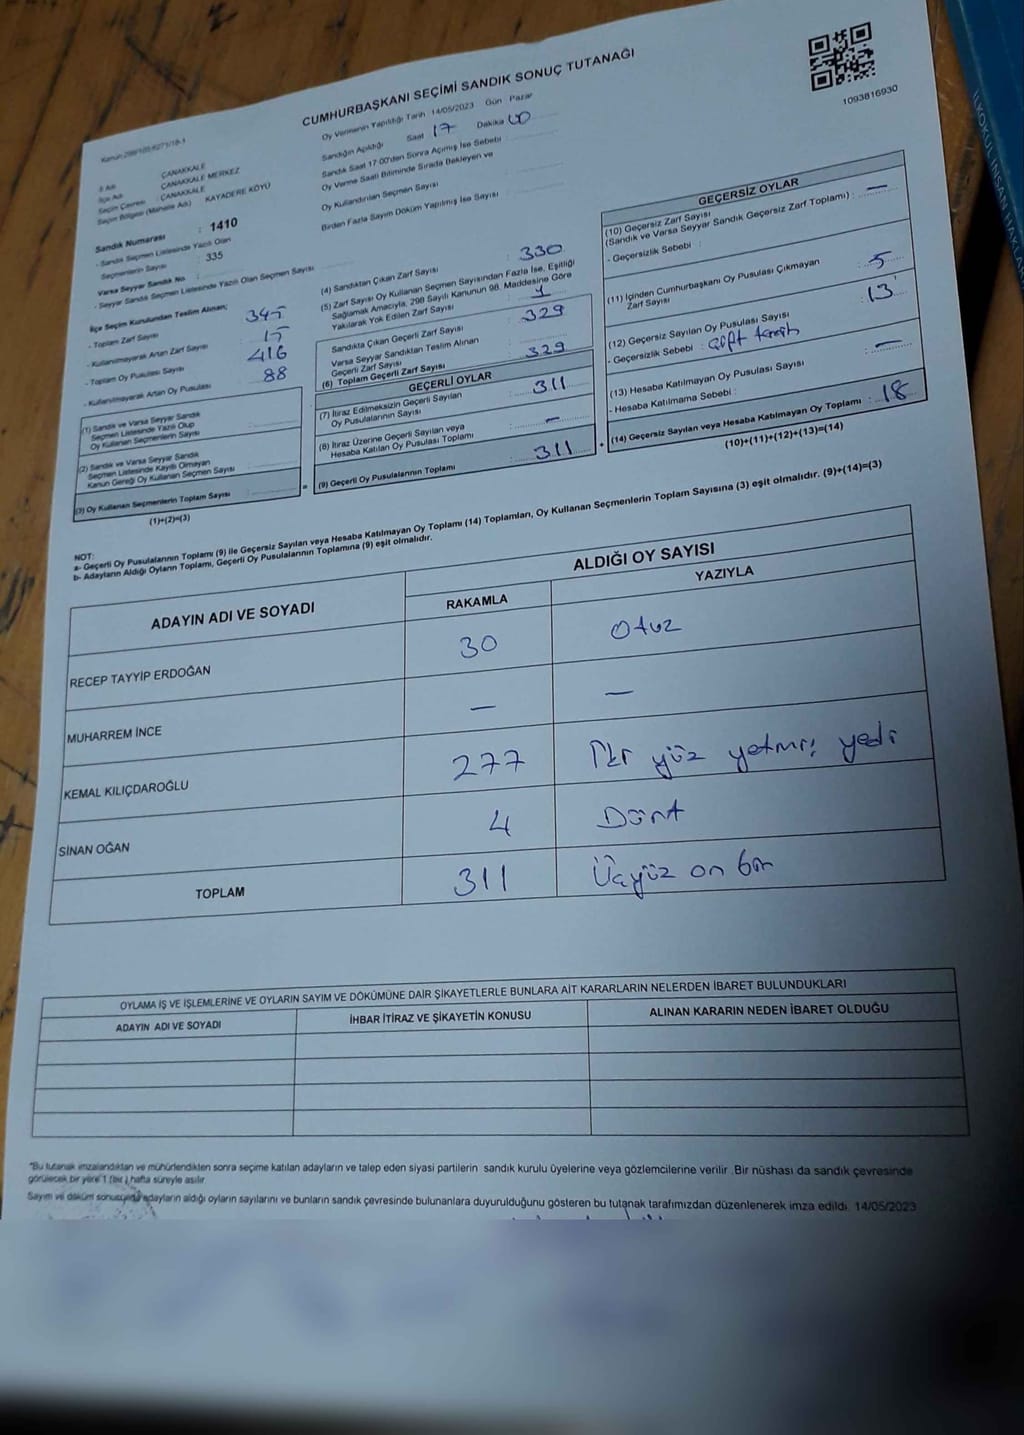 CUMHURBAŞKANI SEÇİMİ SANDIK SONUÇ TUTANAĞI
1093816930
Oy Vermenin Yapıldığı Tarih 14/05/2023 Gün Pazar
Sandığın Açıldığı Saat 17 Dakika 00
Sandık Saat 17:00'den Sonra Açılmış İse Sebebi
Oy Verme Saati Bitiminde Sırada Bekleyen ve
Oy Kullandırılan Seçmen Sayısı
Birden Fazla Sayım Döküm Yapılmış İse Sayısı
İl Adı ÇANAKKALE
İlçe Adı ÇANAKKALE MERKEZ
Seçim Çevresi : ÇANAKKALE
Seçim Bölgesi (Mahalle Adı) KAYADERE KÖYÜ
Sandık Numarası : 1410
- Sandık Seçmen Listesinde Yazılı Olan
Seçmenlerin Sayısı : 335
Varsa Seyyar Sandık No :
- Seyyar Sandık Seçmen Listesinde Yazılı Olan Seçmen Sayısı
İlçe Seçim Kurulundan Teslim Alınan;
- Toplam Zarf Sayısı 345
- Kullanılmayarak Artan Zarf Sayısı 15
- Toplam Oy Pusulası Sayısı 416
- Kullanılmayarak Artan Oy Pusulası 88
(1) Sandık ve Varsa Seyyar Sandık
Seçmen Listesinde Yazılı Olup
Oy Kullanan Seçmenlerin Sayısı
(2) Sandık ve Varsa Seyyar Sandık
Seçmen Listesinde Kayıtlı Olmayan
Kanun Gereği Oy Kullanan Seçmen Sayısı
(3) Oy Kullanan Seçmenlerin Toplam Sayısı
(1)+(2)=(3)
(4) Sandıktan Çıkan Zarf Sayısı : 330
(5) Zarf Sayısı Oy Kullanan Seçmen Sayısından Fazla İse, Eşitliği
Sağlamak Amacıyla, 298 Sayılı Kanunun 98. Maddesine Göre
Yakılarak Yok Edilen Zarf Sayısı : 1
Sandıkta Çıkan Geçerli Zarf Sayısı : 329
Varsa Seyyar Sandıktan Teslim Alınan
Geçerli Zarf Sayısı
(6) Toplam Geçerli Zarf Sayısı : 329
GEÇERLİ OYLAR
(7) İtiraz Edilmeksizin Geçerli Sayılan
Oy Pusulalarının Sayısı : 311
(8) İtiraz Üzerine Geçerli Sayılan veya
Hesaba Katılan Oy Pusulası Toplamı : —
= (9) Geçerli Oy Pusulalarının Toplamı : 311
GEÇERSİZ OYLAR
(10) Geçersiz Zarf Sayısı
(Sandık ve Varsa Seyyar Sandık Geçersiz Zarf Toplamı) : —
- Geçersizlik Sebebi :
(11) İçinden Cumhurbaşkanı Oy Pusulası Çıkmayan
Zarf Sayısı : 5
(12) Geçersiz Sayılan Oy Pusulası Sayısı : 13
- Geçersizlik Sebebi : çift tercih
(13) Hesaba Katılmayan Oy Pusulası Sayısı : —
- Hesaba Katılmama Sebebi :
+ (14) Geçersiz Sayılan veya Hesaba Katılmayan Oy Toplamı : 18
(10)+(11)+(12)+(13)=(14)
NOT:
a- Geçerli Oy Pusulalarının Toplamı (9) ile Geçersiz Sayılan veya Hesaba Katılmayan Oy Toplamı (14) Toplamları, Oy Kullanan Seçmenlerin Toplam Sayısına (3) eşit olmalıdır. (9)+(14)=(3)
b- Adayların Aldığı Oyların Toplamı, Geçerli Oy Pusulalarının Toplamına (9) eşit olmalıdır.
ADAYIN ADI VE SOYADI ALDIĞI OY SAYISI
RAKAMLA YAZIYLA
RECEP TAYYİP ERDOĞAN 30 Otuz
MUHARREM İNCE — —
KEMAL KILIÇDAROĞLU 277 İki yüz yetmiş yedi
SİNAN OĞAN 4 Dört
TOPLAM 311 Üçyüz on bir
OYLAMA İŞ VE İŞLEMLERİNE VE OYLARIN SAYIM VE DÖKÜMÜNE DAİR ŞİKAYETLERLE BUNLARA AİT KARARLARIN NELERDEN İBARET BULUNDUKLARI
ADAYIN ADI VE SOYADI İHBAR İTİRAZ VE ŞİKAYETİN KONUSU ALINAN KARARIN NEDEN İBARET OLDUĞU
*Bu tutanak imzalandıktan ve mühürlendikten sonra seçime katılan adayların ve talep eden siyasi partilerin sandık kurulu üyelerine veya gözlemcilerine verilir. Bir nüshası da sandık çevresinde
görülecek bir yere 1 (bir) hafta süreyle asılır
Sayım ve döküm sonucunda adayların aldığı oyların sayılarını ve bunların sandık çevresinde bulunanlara duyurulduğunu gösteren bu tutanak tarafımızdan düzenlenerek imza edildi. 14/05/2023
İLKOKUL İNSAN HAKLAR